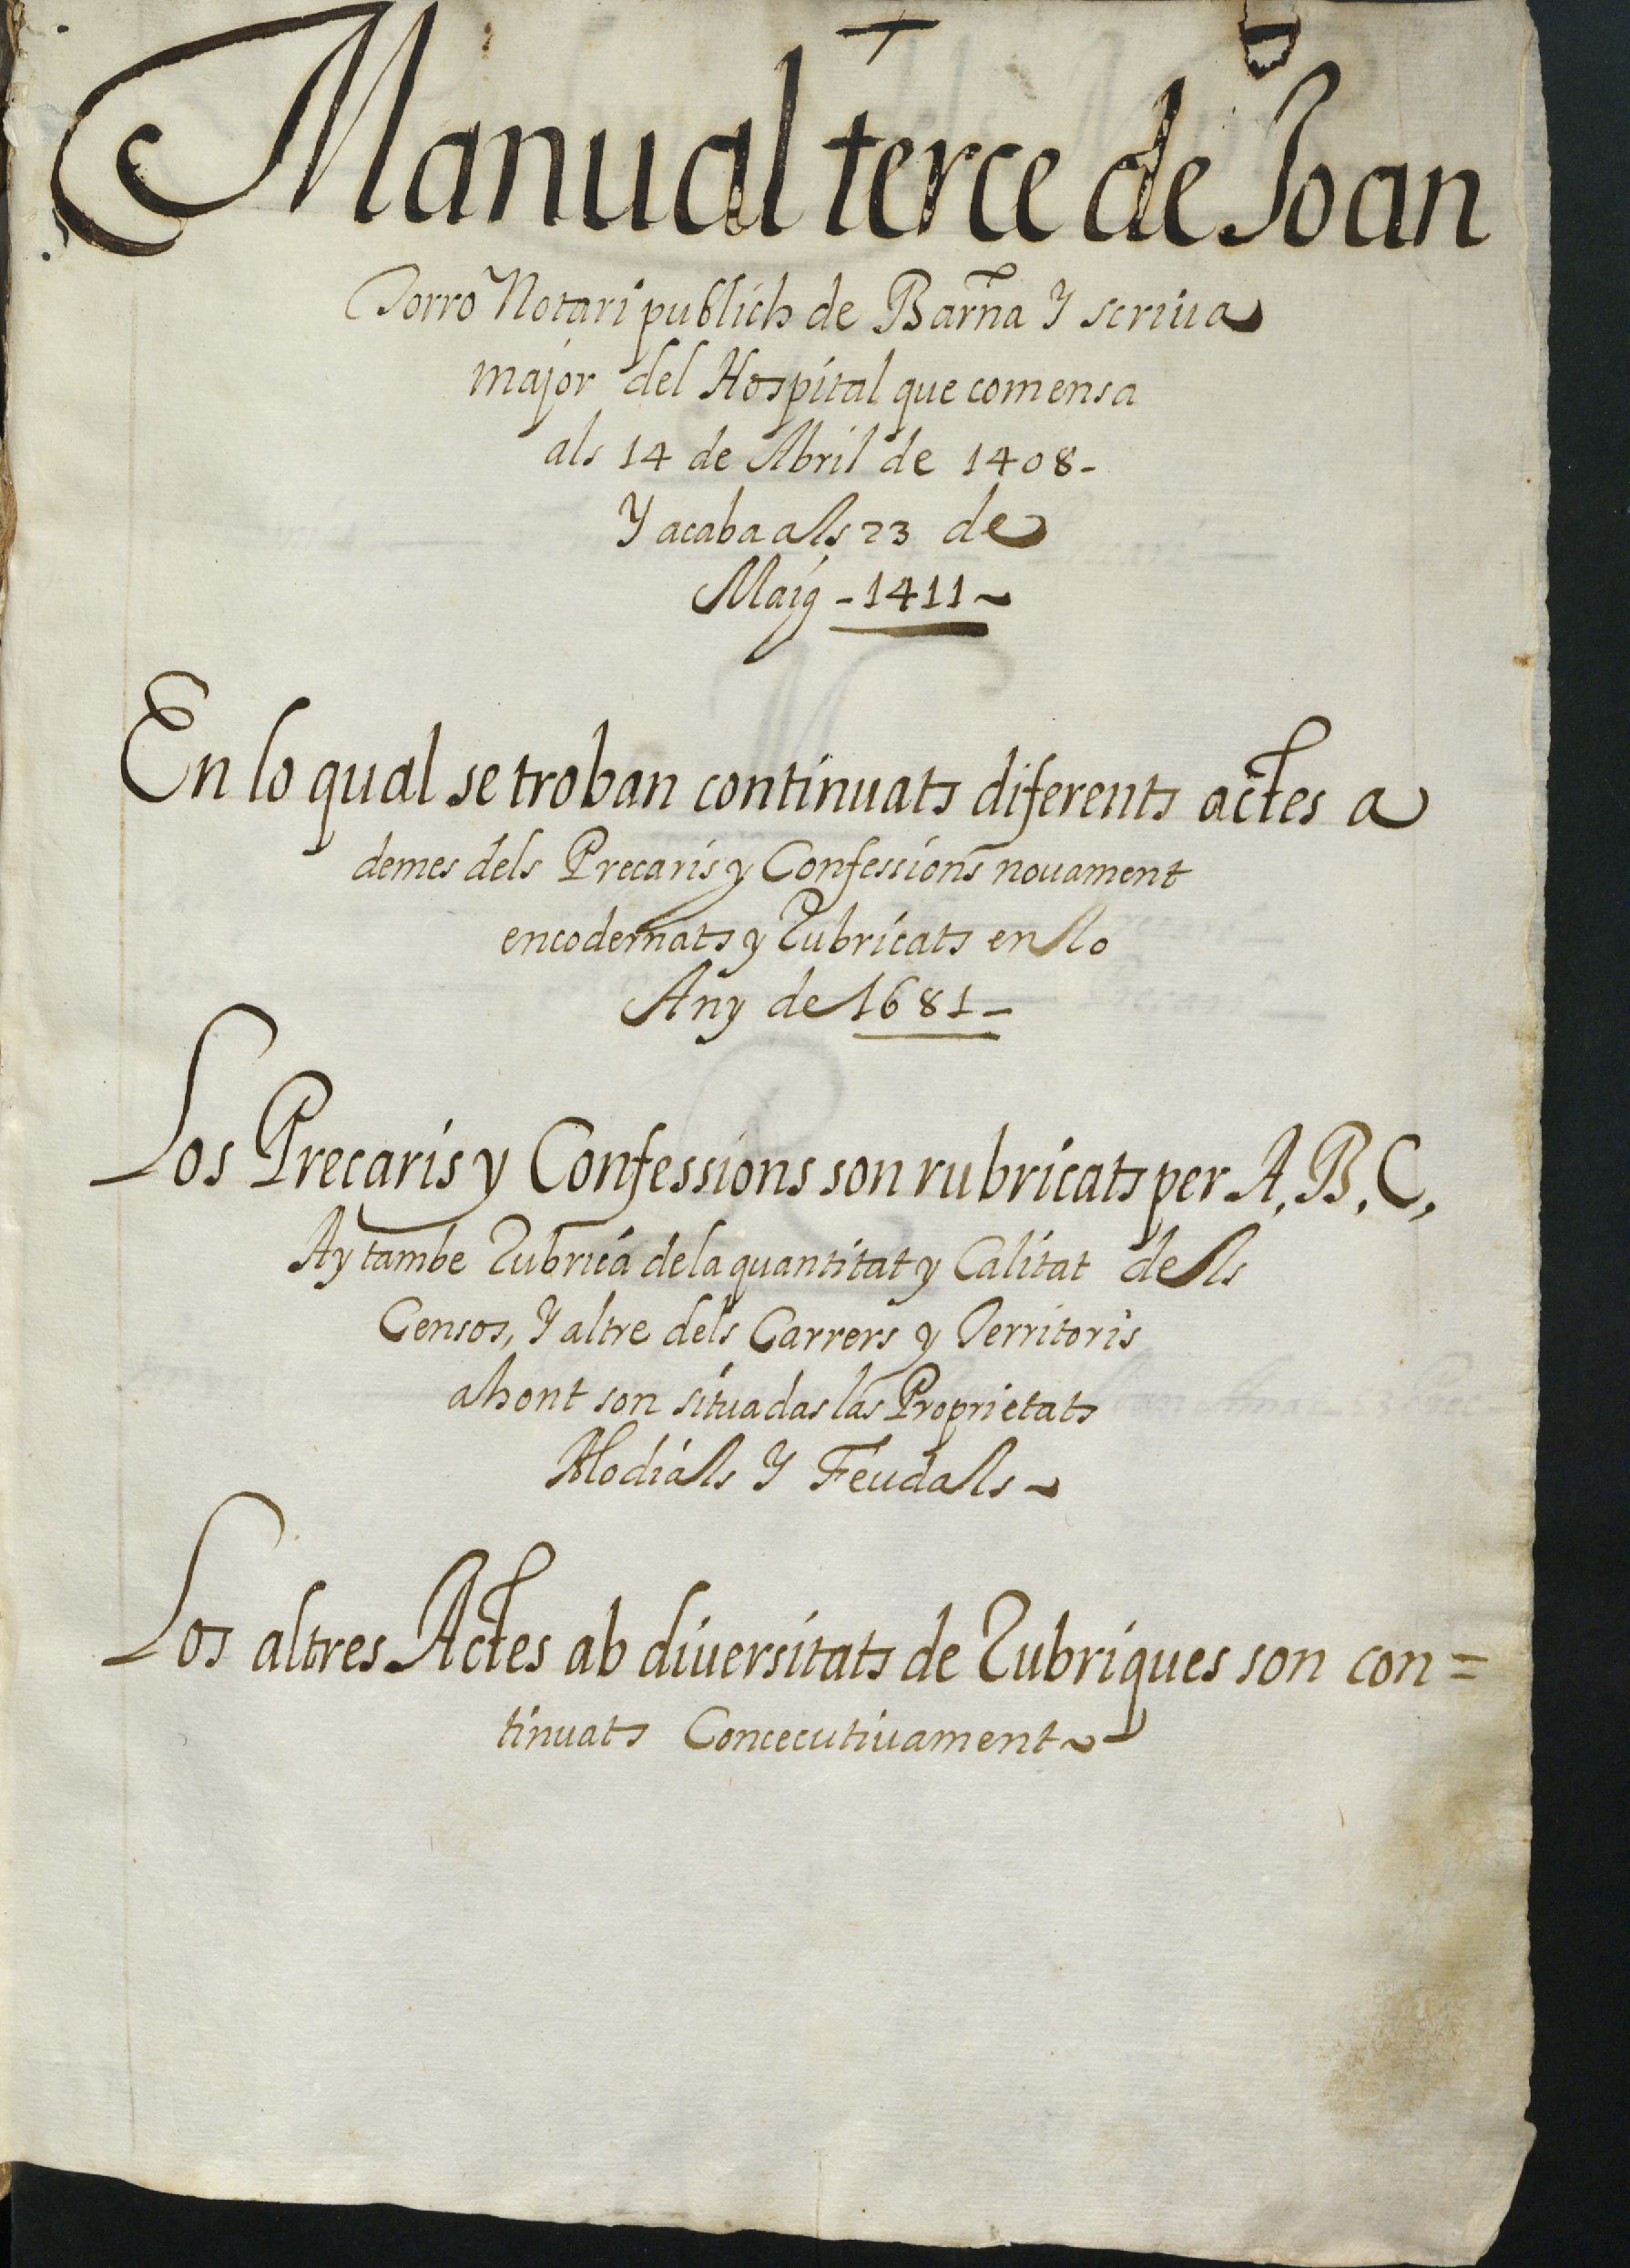 Manual terce de Joan
Torro Notari publich de Barña Y scriua
major del Hospital que comensa
als 14 de Abril de 1408-
Y acaba als 23 de
Maig - 1411~
En lo qual se troban continuats diferents actes a
demes dels Precaris y Confessions nouament
encodernats y Rubricats en lo
Any de 1681-
Los Precaris y Confessions son rubricats per A, B, C,
Ay tambe Rubrica de la quantitat y Calitat dels
Censos, Y altre dels Carrers y Territoris
ahont son situadas las Proprietats
Alodials Y Feudals~
Los altres Actes ab diuersitats de Rubriques son con=
tinuats Concecutiuament~